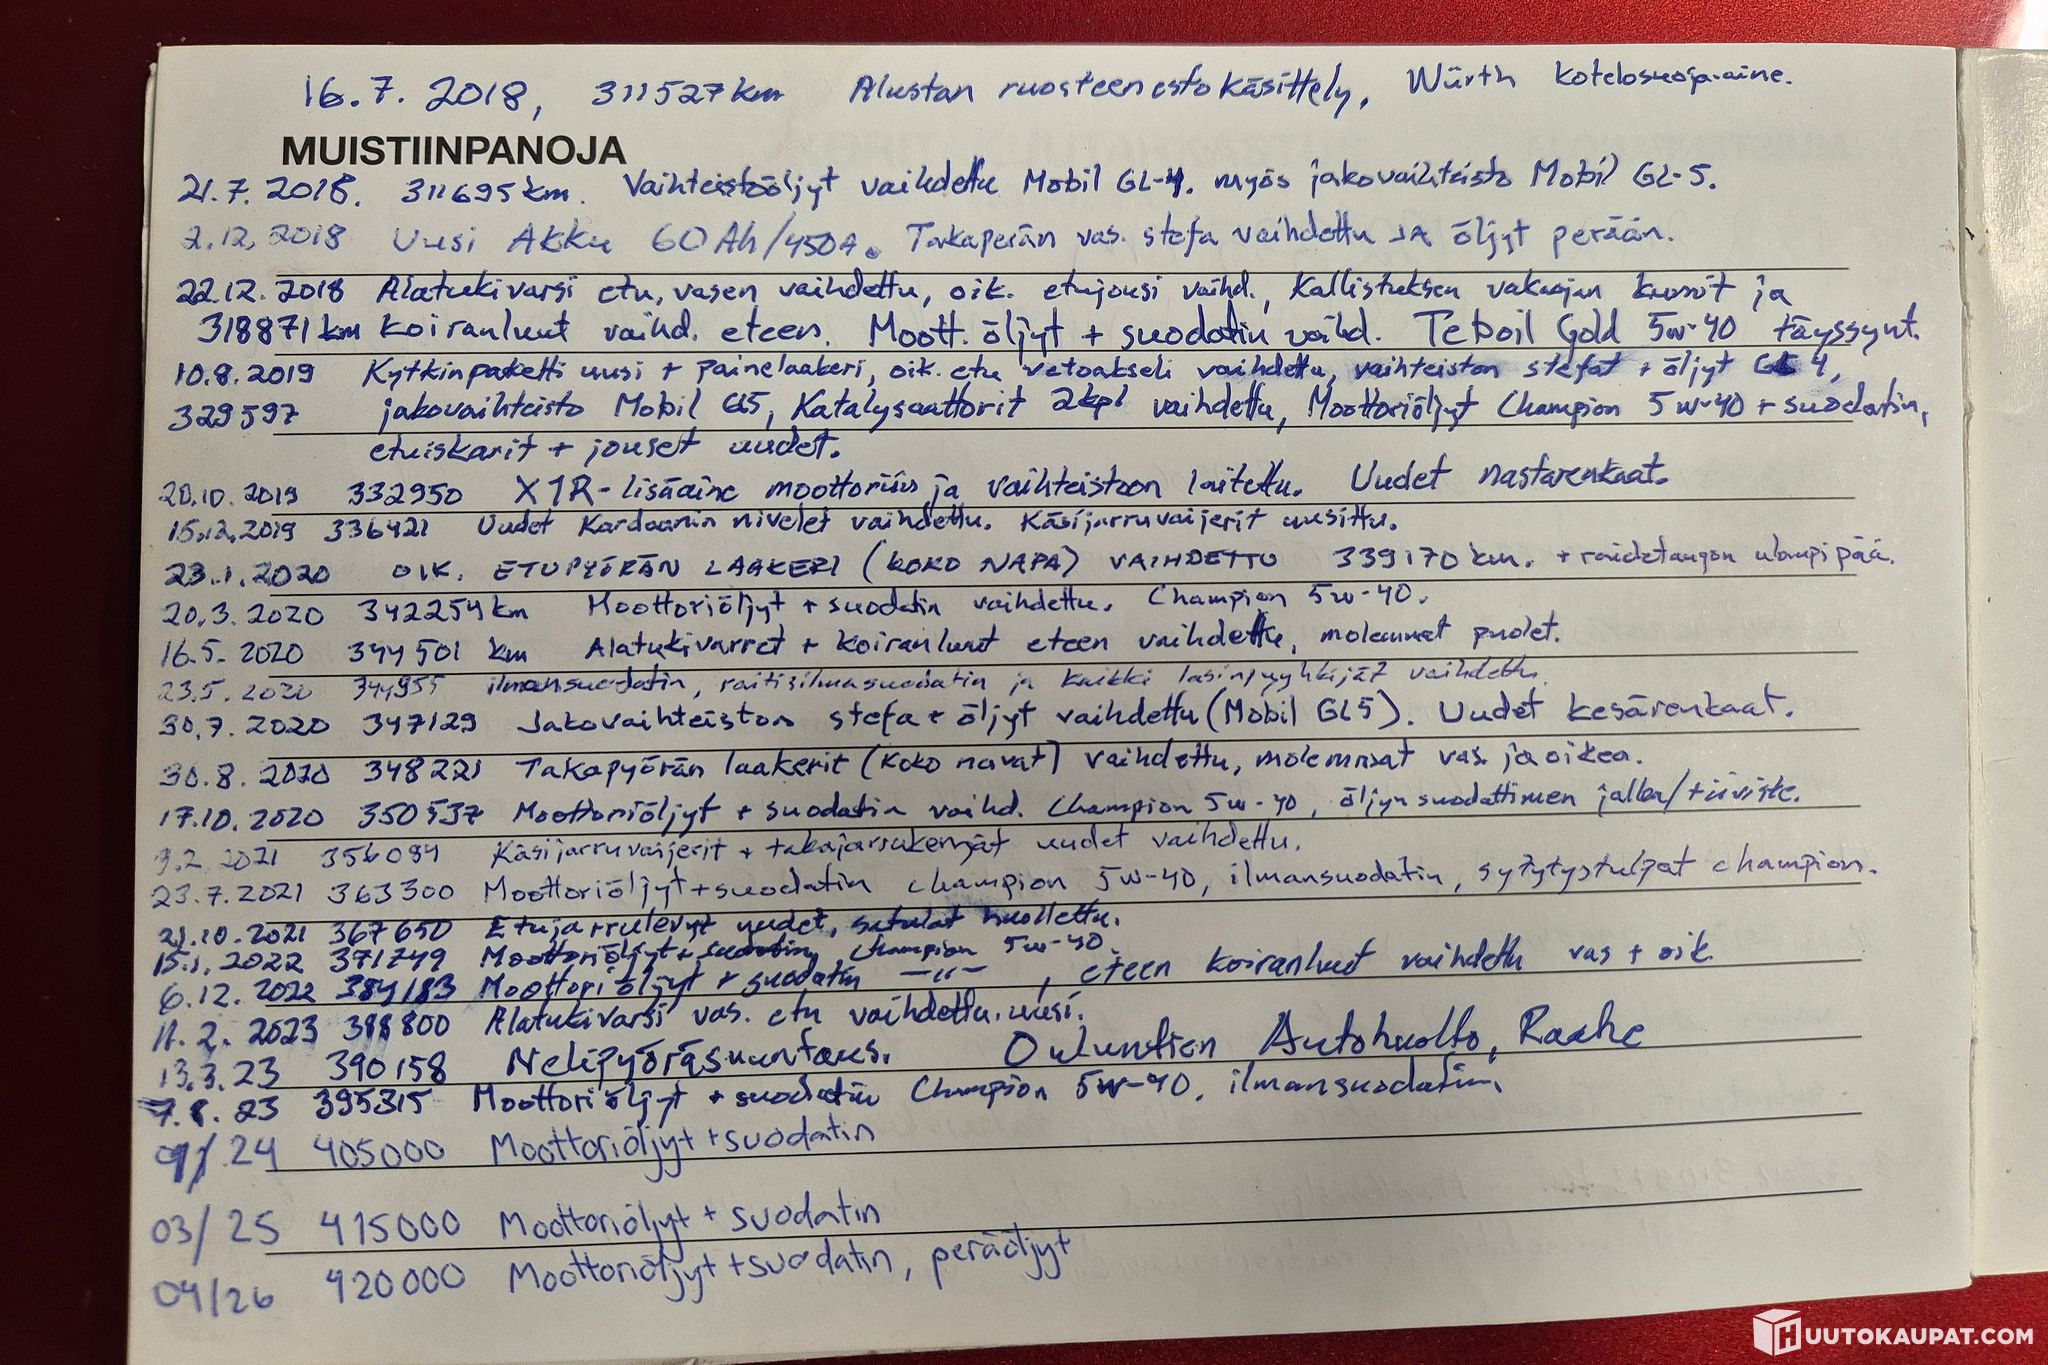 16.7. 2018, 311527 km Alustan ruosteenestokäsittely, Würth kotelosuoja-aine.
MUISTIINPANOJA
21.7. 2018. 311695 km. Vaihteistoöljyt vaihdettu Mobil GL-4. myös jakovaihteisto Mobil GL-5.
2.12. 2018 Uusi Akku 60 Ah/450A. Takaperän vas. stefa vaihdettu JA öljyt perään.
22.12. 2018 Alatukivarsi etu, vasen vaihdettu, oik. etujousi vaihd., Kallistuksen vakaajan kumit ja
318871 km koiranluut vaihd. eteen. Moott. öljyt + suodatin vaihd. Teboil Gold 5w-40 täyssynt.
10.8.2019 Kytkinpaketti uusi + painelaakeri, oik. etu vetoakseli vaihdettu, vaihteiston stefat + öljyt GL 4,
329597 jakovaihteisto Mobil GL5, Katalysaattorit 2kpl vaihdettu, Moottoriöljyt Champion 5w-40 + suodatin,
etuiskarit + jouset uudet.
20.10. 2019 332950 X1R-lisäaine moottoriin ja vaihteistoon laitettu. Uudet nastarenkaat.
15.12.2019 336421 Uudet Kardaanin nivelet vaihdettu. Käsijarruvaijerit uusittu.
23.1.2020 OIK. ETUPYÖRÄN LAAKERI (KOKO NAPA) VAIHDETTU 339170 km. + raidetangon ulompi pää.
20.3. 2020 342254 km Moottoriöljyt + suodatin vaihdettu. Champion 5w-40.
16.5. 2020 344501 km Alatukivarret + koiranluut eteen vaihdettu, molemmat puolet.
23.5. 2020 344955 ilmansuodatin, raitisilmasuodatin ja kaikki lasinpyyhkijät vaihdettu.
30.7. 2020 347129 Jakovaihteiston stefa + öljyt vaihdettu (Mobil GL5). Uudet kesärenkaat.
30.8. 2020 348221 Takapyörän laakerit (koko navat) vaihdettu, molemmat vas. ja oikea.
17.10. 2020 350537 Moottoriöljyt + suodatin vaihd. Champion 5w-40, öljynsuodattimen jalka/tiiviste.
3.2. 2021 356094 Käsijarruvaijerit + takajarrukengät uudet vaihdettu.
23.7. 2021 363300 Moottoriöljyt + suodatin champion 5w-40, ilmansuodatin, sytytystulpat champion.
21.10.2021 367650 Etujarrulevyt uudet, satulat huollettu.
15.1. 2022 371749 Moottoriöljyt + suodatin, Champion 5w-40.
6.12. 2022 384183 Moottoriöljyt + suodatin —"—, eteen koiranluut vaihdettu vas + oik.
11.2. 2023 388800 Alatukivarsi vas. etu vaihdettu. uusi.
13.3.23 390158 Nelipyöräsuuntaus. Oulunstien Autohuolto, Raahe
7.8. 23 395315 Moottoriöljyt + suodatin Champion 5w-40, ilmansuodatin.
24 405000 Moottoriöljyt + suodatin
03/25 415000 Moottoriöljyt + suodatin
04/26 420000 Moottoriöljyt + suodatin, peräöljyt
HUUTOKAUPAT.COM